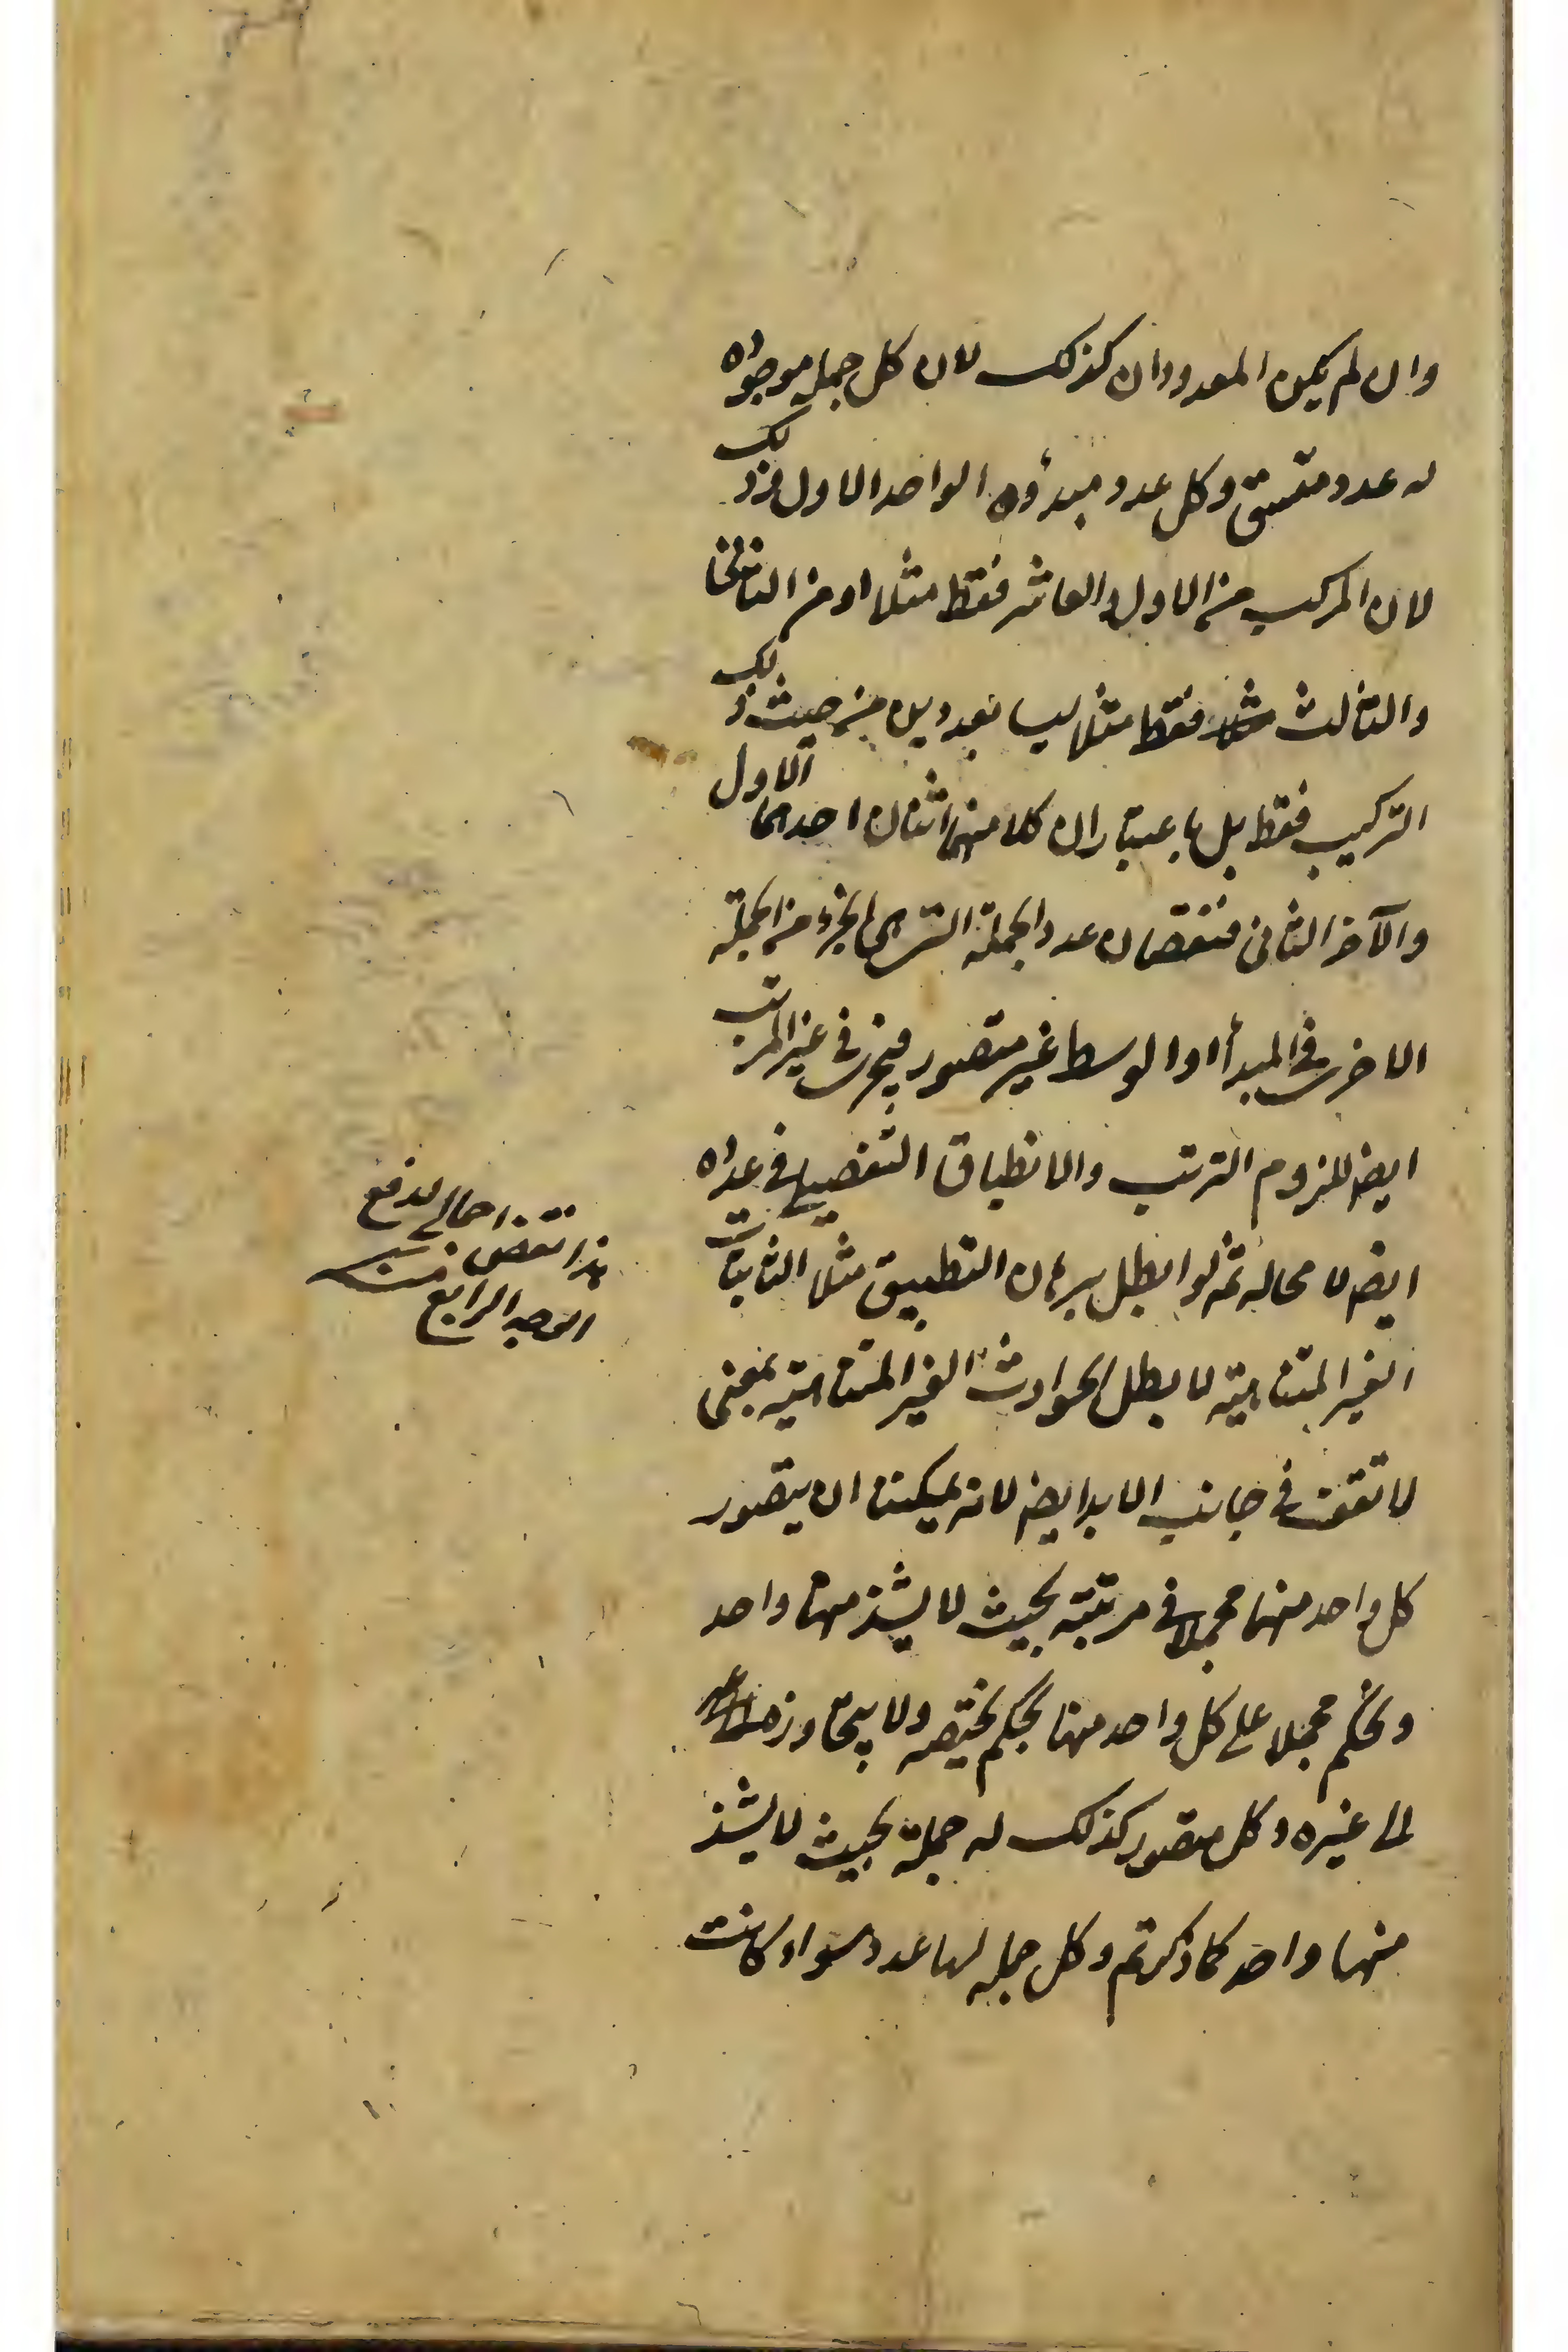 وان لم يكن المعدودان كذلك لان كل جملة موجودة
له عدد متسق وكل عدد مبدؤه الواحد الاول فذلك
لان المركب من الاول والعاشر فقط مثلا او من الثانى
والثالث فقط مثلا ليسا بعددين من حيث ذلك
التركيب فقط بل باعتبار ان كلا منهما اثنان احدهما الاول
والآخر الثانى فنقصان عدد الجملة التى هى الجزء من الجملة
الاخرى فى المبدأ او الوسط غير متصور فيجرى فى غير المرتب
ايضا للزوم الترتب والانطباق التفصيلى فى عدده
ايضا لا محالة ثم لو ابطل برهان التطبيق مثلا الثابتات
الغير المتناهية لابطل الحوادث الغير المتناهية بمعنى
لا تقف فى جانب الابد ايضا لانه يمكننا ان يتصور
كل واحد منها مجملا فى مرتبته بحيث لا يشذ منها واحد
ونحكم مجملا على كل واحد منها بحكم يختصه ولا يتجاوز
الى غيره وكل متصور كذلك له جملة بحيث لا يشذ
منها واحد كما ذكرتم وكل جملة لها عدد سواء كانت
هذا نقض اجمالى لدفع
الوجه الرابع منه